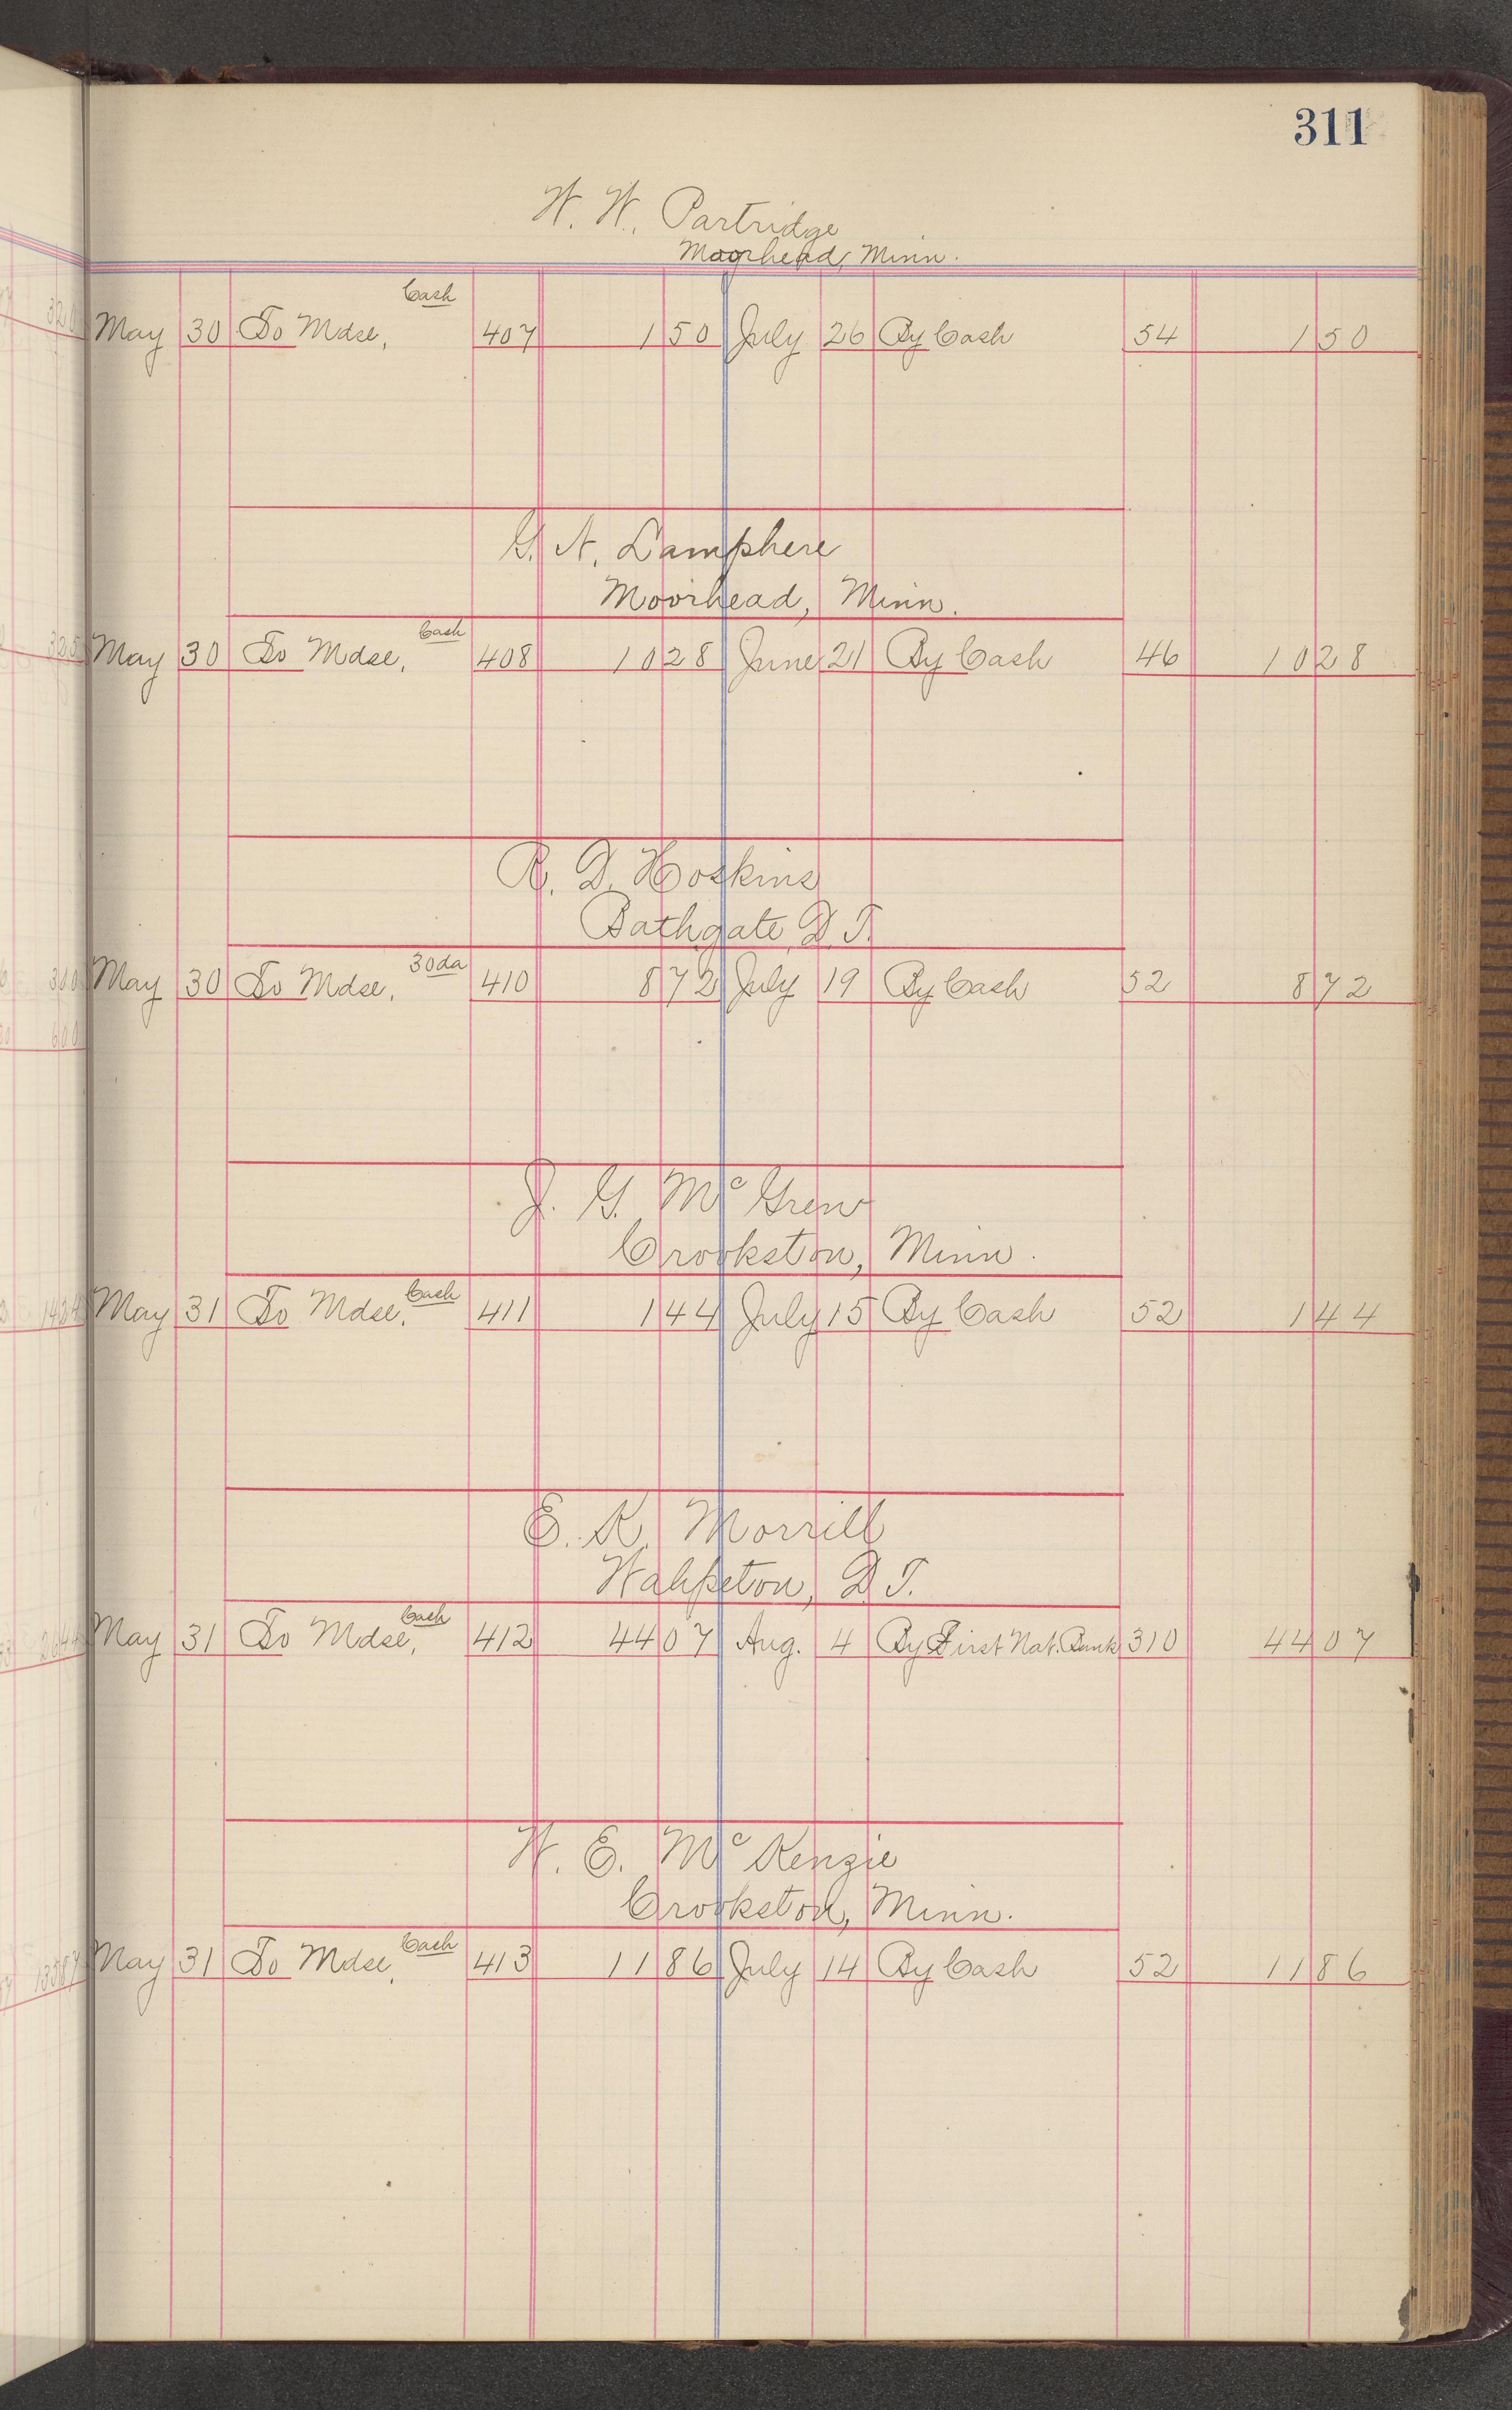 311
W. W. Partridge
Moorhead, Minn.
May 30 To Mdse, Cash 407 1 50 July 26 By Cash 54 1 50
G. N. Lamphere
Moorhead, Minn.
May 30 To Mdse, Cash 408 10 28 June 21 By Cash 46 10 28
R. D. Hoskins
Bathgate, D. T.
May 30 To Mdse, 30 da 410 8 72 July 19 By Cash 52 8 72
J. G. McGrew
Crookston, Minn.
May 31 To Mdse, Cash 411 1 44 July 15 By Cash 52 1 44
E. K. Morrill
Wahpeton, D. T.
May 31 To Mdse, Cash 412 44 07 Aug. 4 By First Nat. Bank 310 44 07
W. E. McKenzie
Crookston, Minn.
May 31 To Mdse, Cash 413 11 86 July 14 By Cash 52 11 86